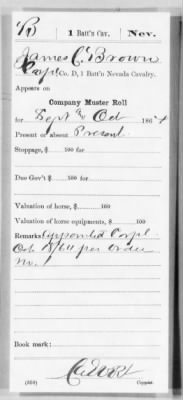 B | 1 Batt'n Cav. | Nev.
James C. Brown
Corpl Co. D, 1 Batt'n Nevada Cavalry.
Appears on
Company Muster Roll
for Sept & Oct , 1864
Present or absent Present
Stoppage, $ 100 for
Due Gov't $ 100 for
Valuation of horse, $ 100
Valuation of horse equipments, $ 100
Remarks: Appointed Corpl
Oct /64 per Order
No. 1
Book mark:
(358)
Copyist.